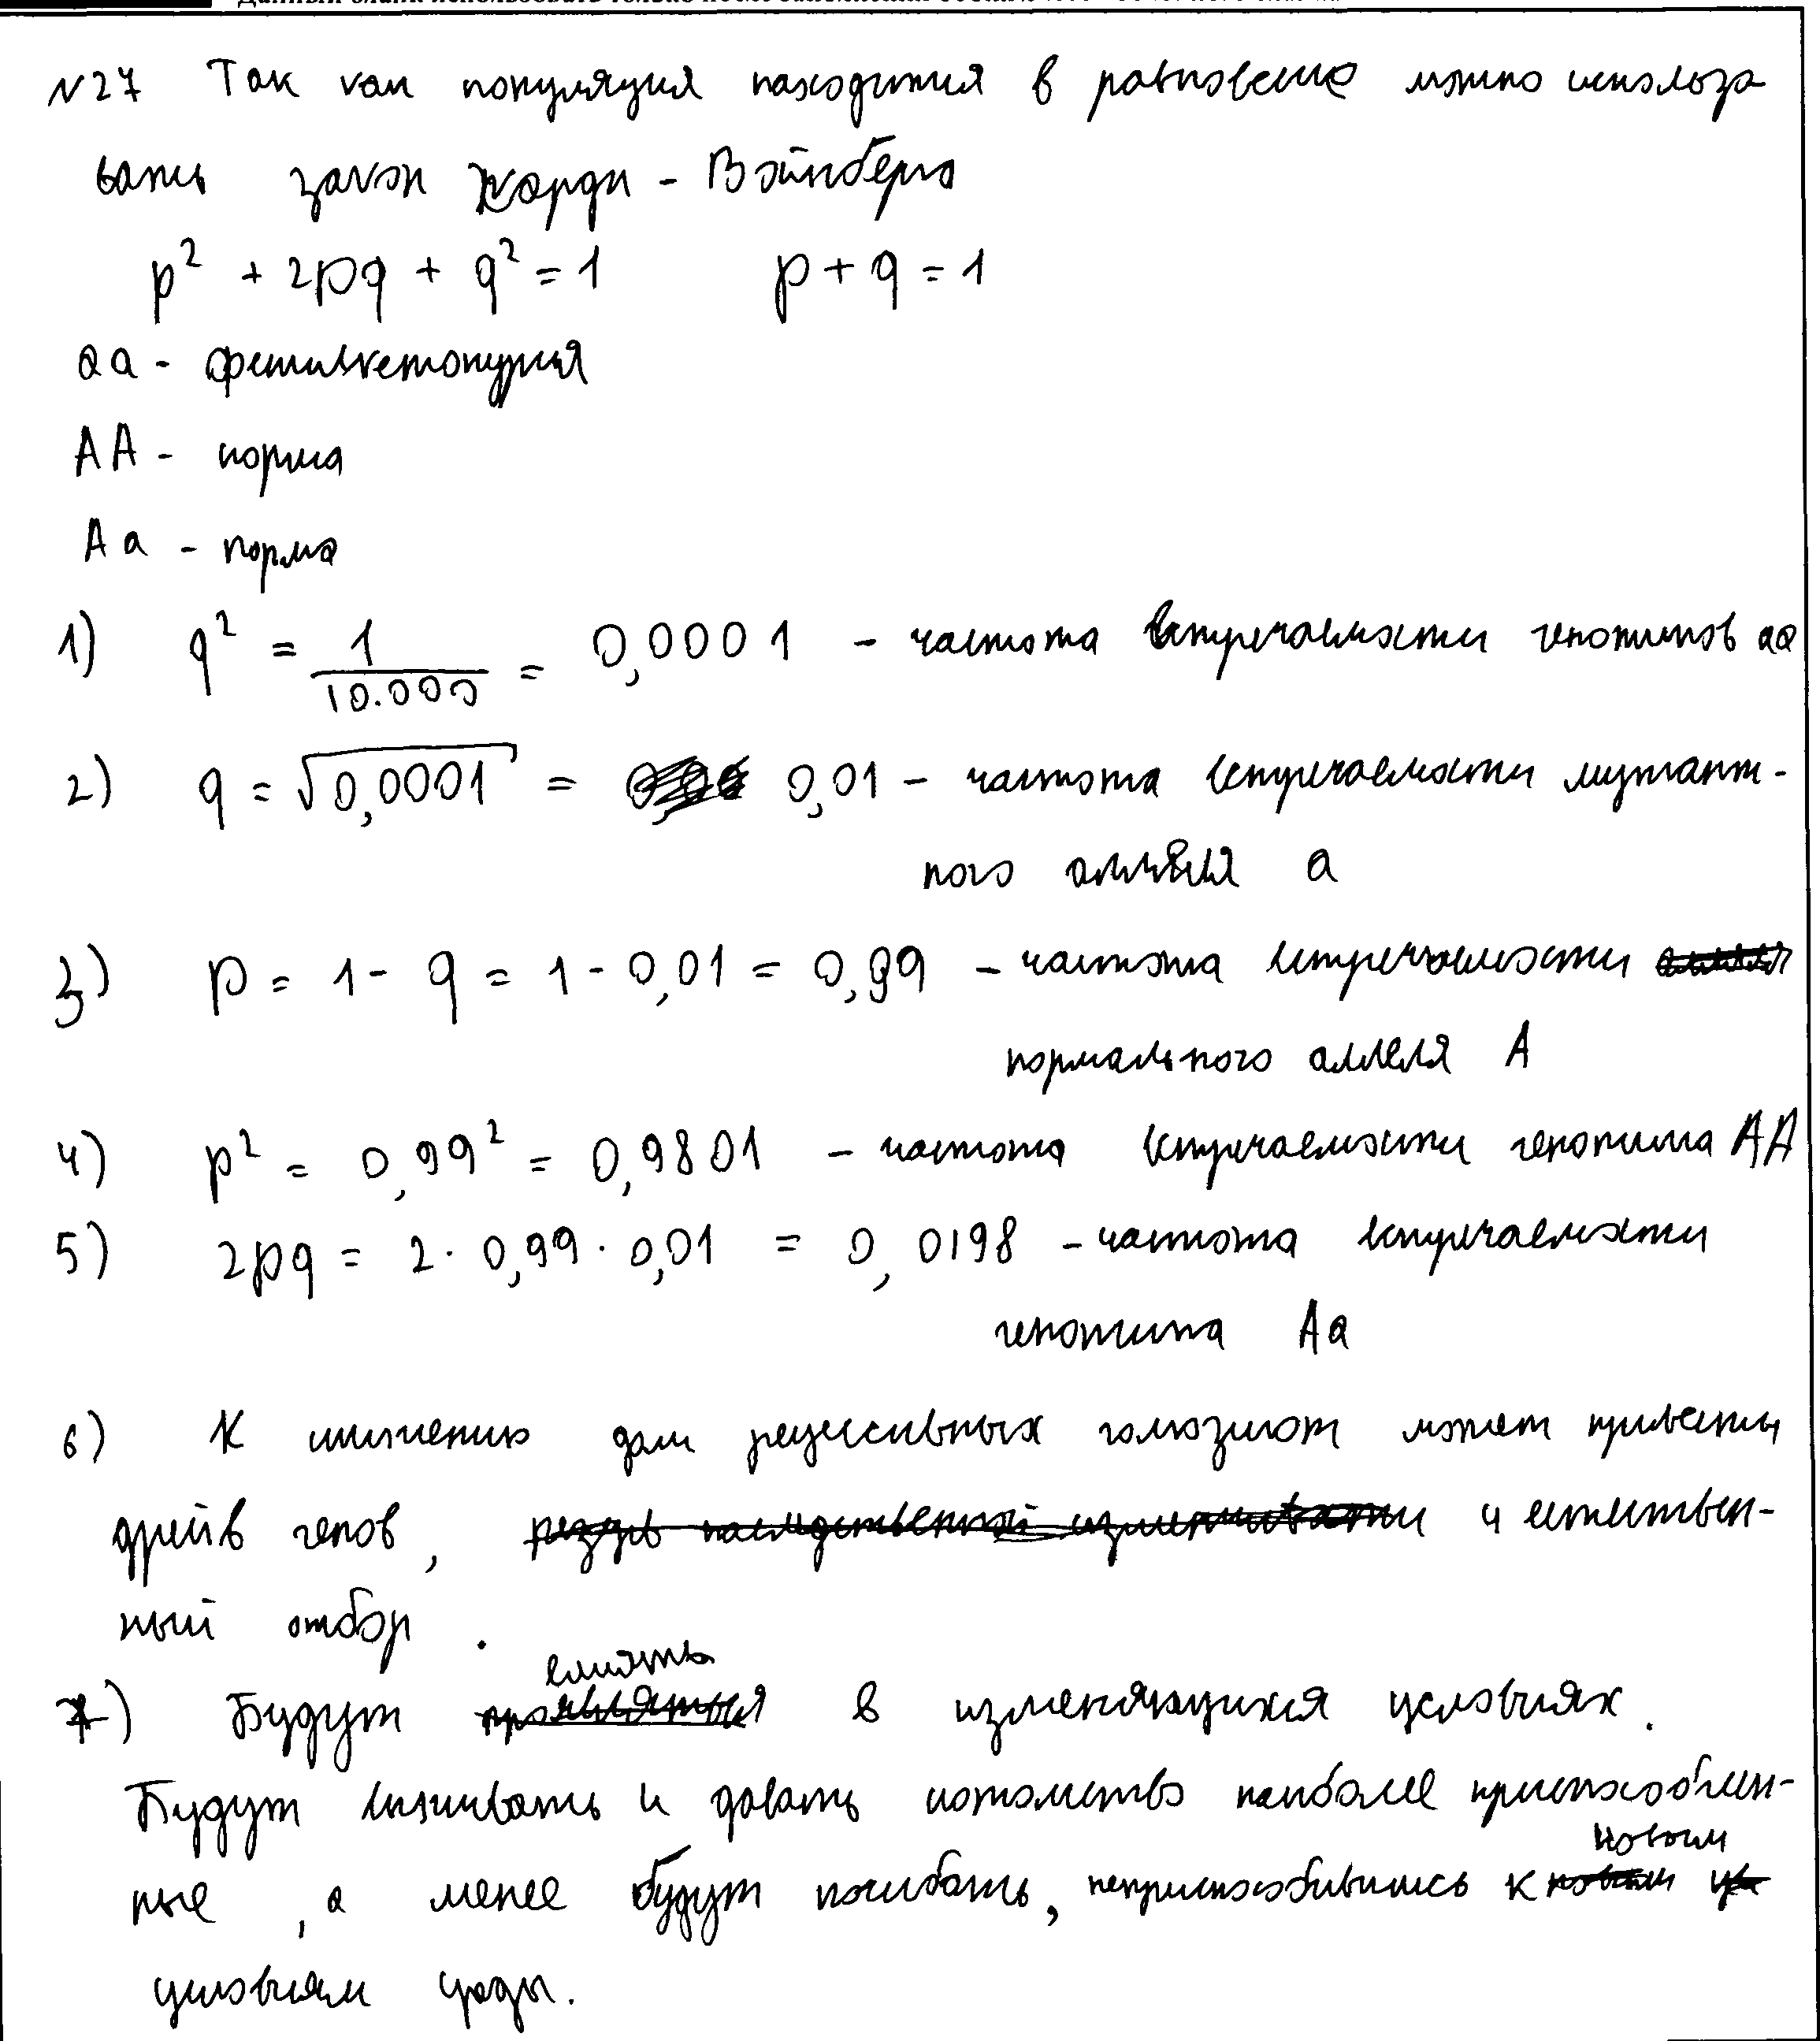 №27 Так как популяция находится в равновесие можно использо
вать закон Харди - Вайнберга
p² + 2pq + q² = 1 p + q = 1
aa - фенилкетонурия
AA - норма
Aa - норма
1) q² = 1/10.000 = 0,0001 - частота встречаемости генотипов aa
2) q = √0,0001 = 0,01 - частота встречаемости мутант-
ного аллеля a
3) p = 1 - q = 1 - 0,01 = 0,99 - частота встречаемости
нормального аллеля A
4) p² = 0,99² = 0,9801 - частота встречаемости генотипа AA
5) 2pq = 2 · 0,99 · 0,01 = 0,0198 - частота встречаемости
генотипа Aa
6) К снижению доли рецессивных гомозигот может привести
дрейф генов, и естествен-
ный отбор.
7) Будут влиять в изменяющихся условиях.
Будут выживать и давать потомство наиболее приспособлен-
ные, а менее будут погибать, неприспособившись к новым
условиям среды.